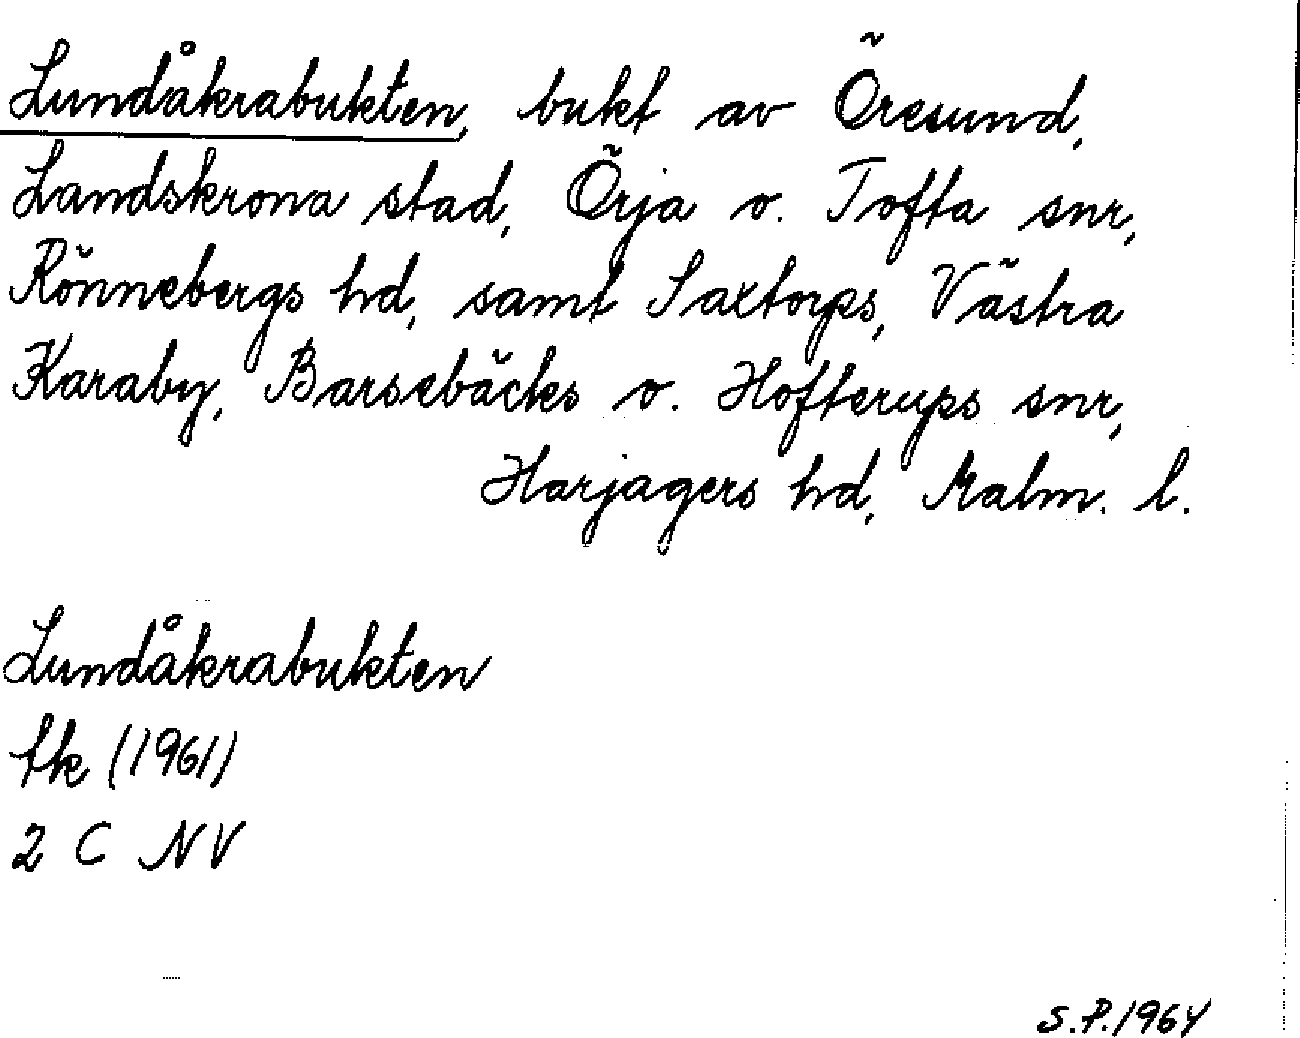 Lundåkrabukten, bukt av Öresund,
Landskrona stad, Örja o. Tofta snr,
Rönnebergs hd, samt Saxtorps, Västra
Karaby, Barsebäcks o. Hofterups snr,
Harjagers hd, Malm. l.
Lundåkrabukten
tk (1961)
2 C NV
S.P. 1964